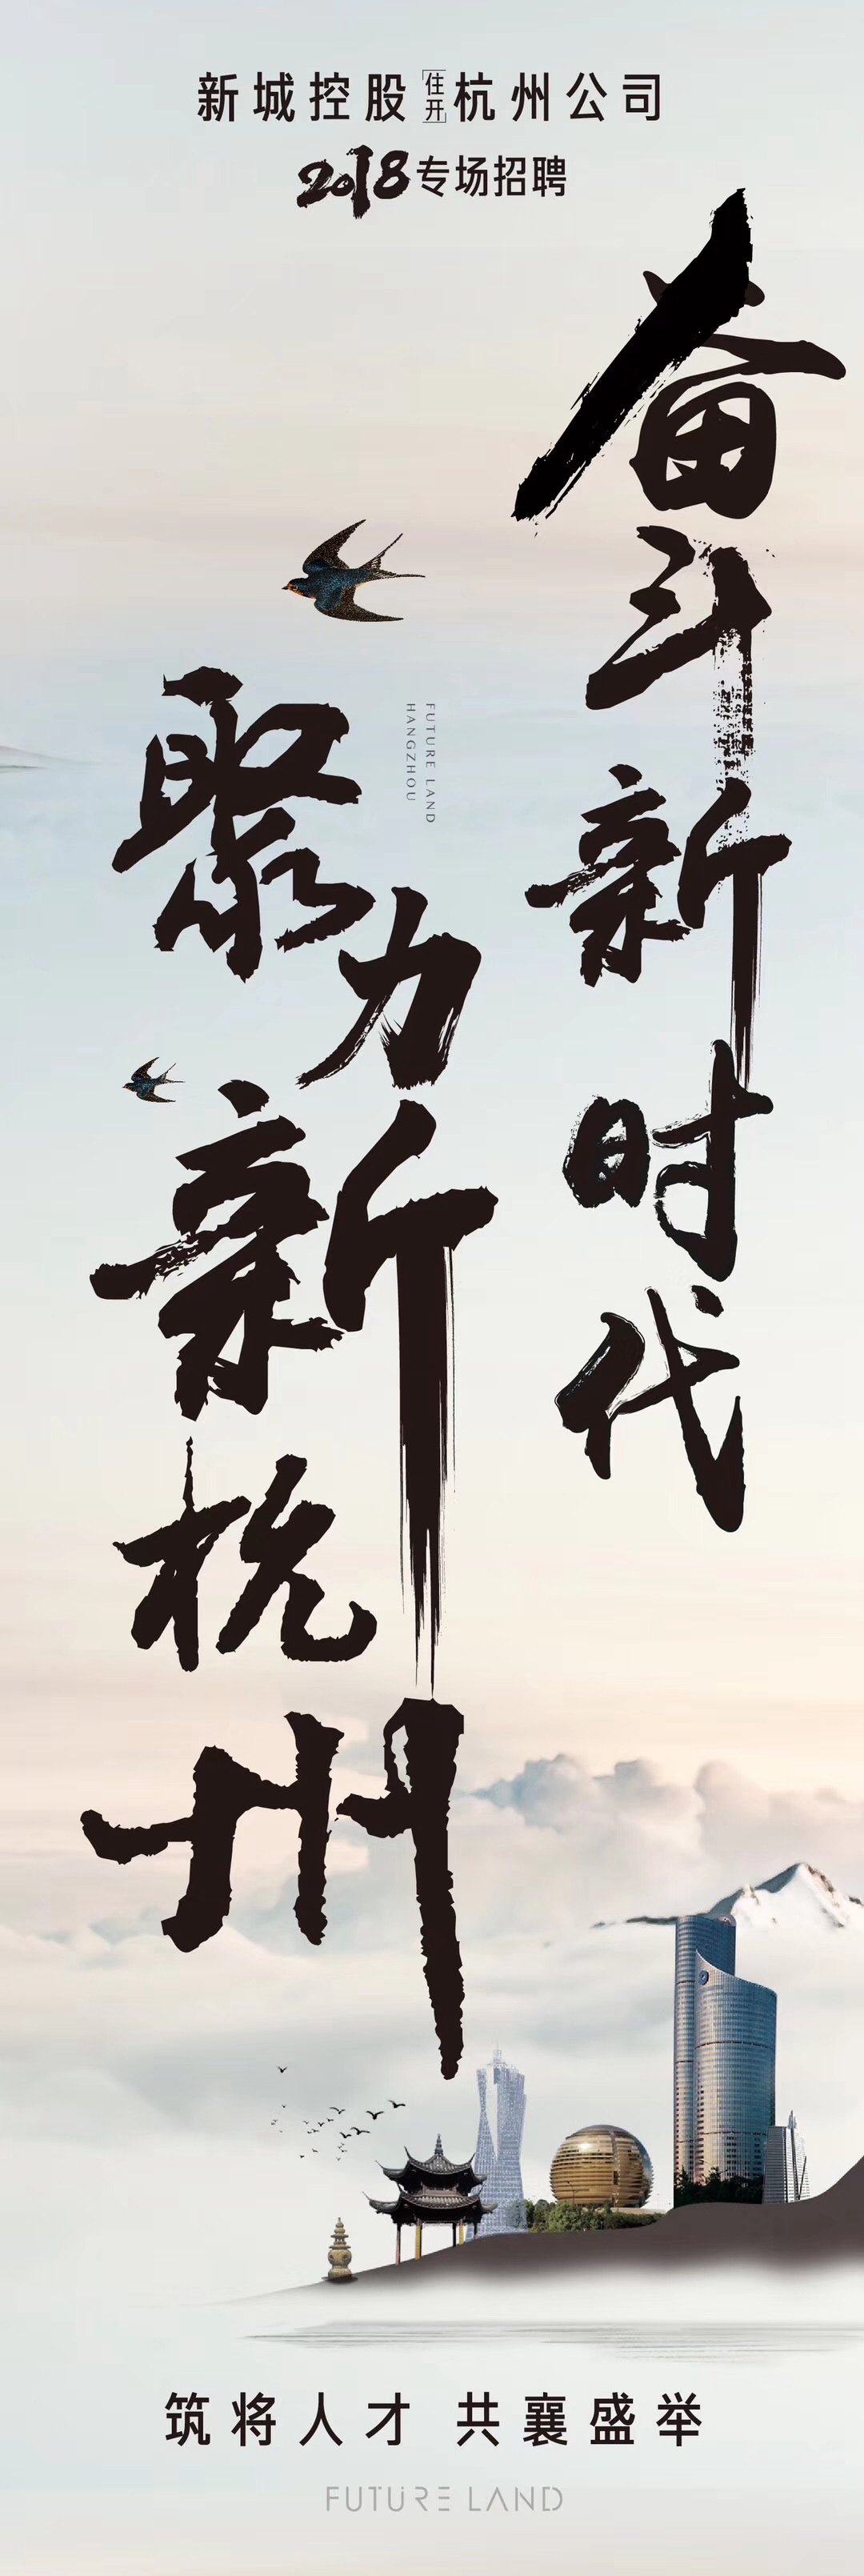 新城控股「住开」杭州公司
2018专场招聘
奋斗新时代
聚力新杭州
FUTURE LAND
HANGZHOU
筑将人才 共襄盛举
FUTURE LAND